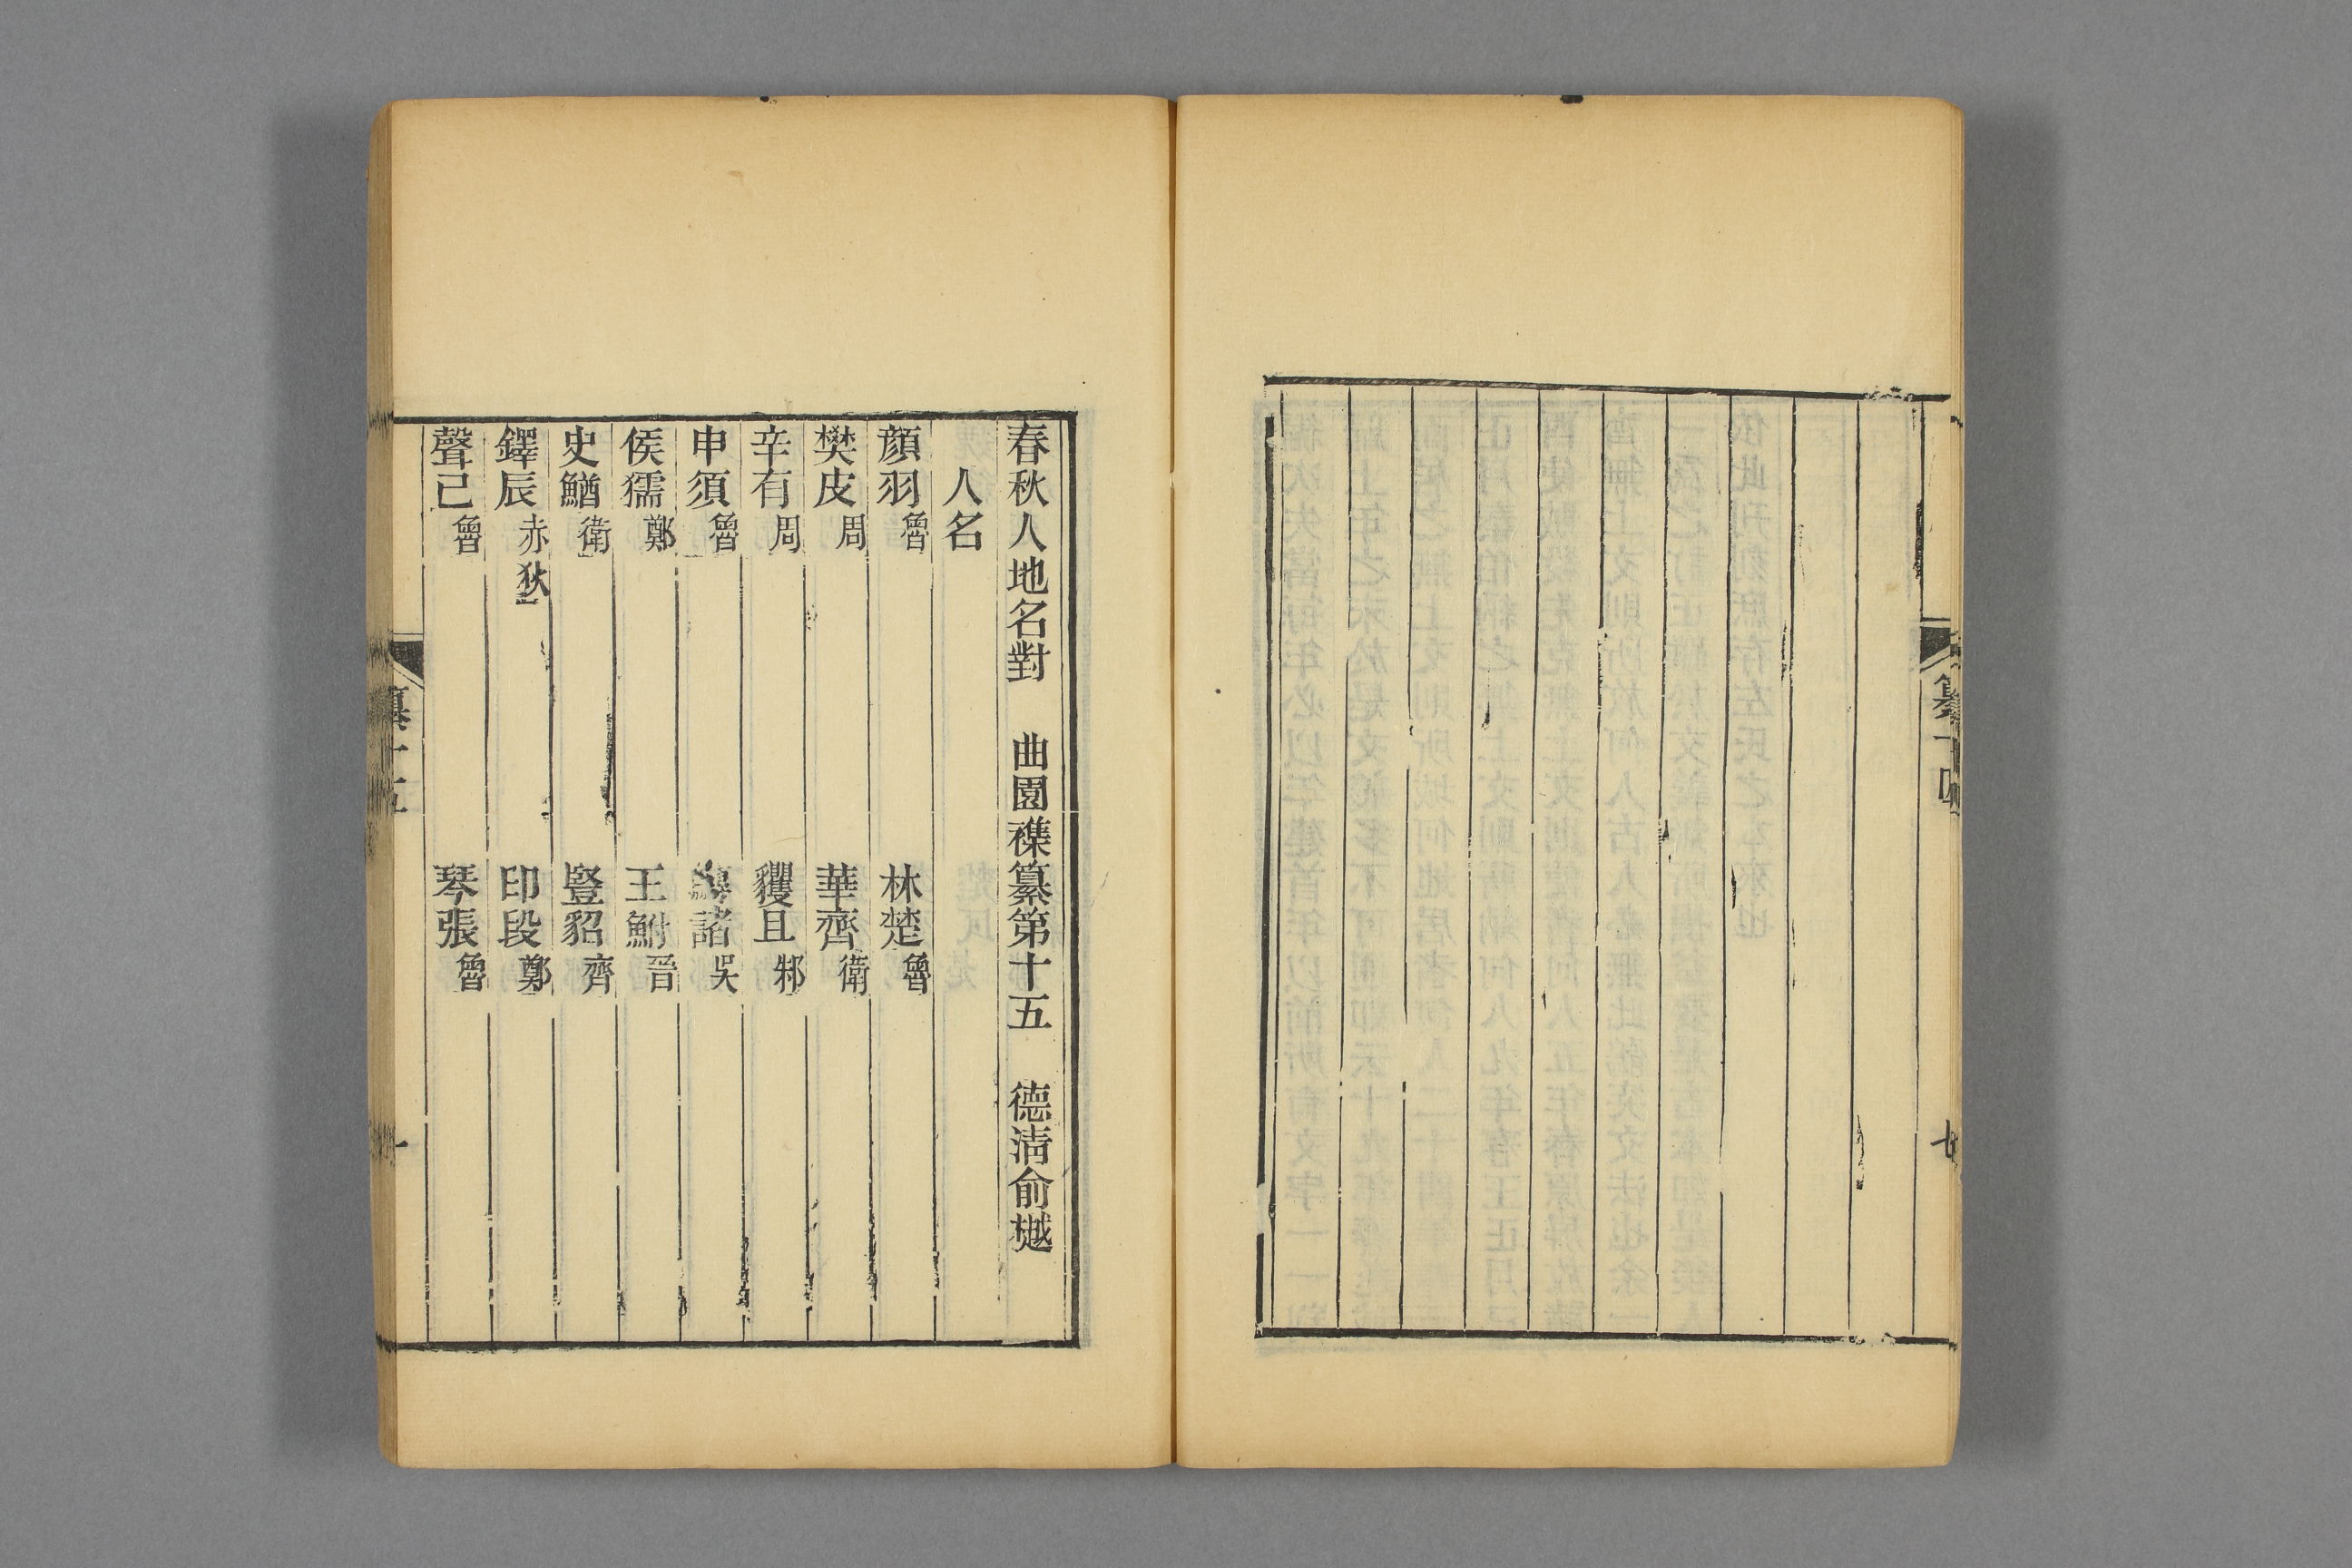 纂十四
七
春秋人地名對　曲園襍纂第十五　德淸俞樾
人名
顏羽魯　林楚魯
樊皮周　華齊衛
辛有周　貜且邾
申須魯　諸吳
侯獳鄭　王鮒晉
史鰌衛　豎貂齊
鐸辰赤狄　印段鄭
聲己魯　琴張魯
纂十五
一